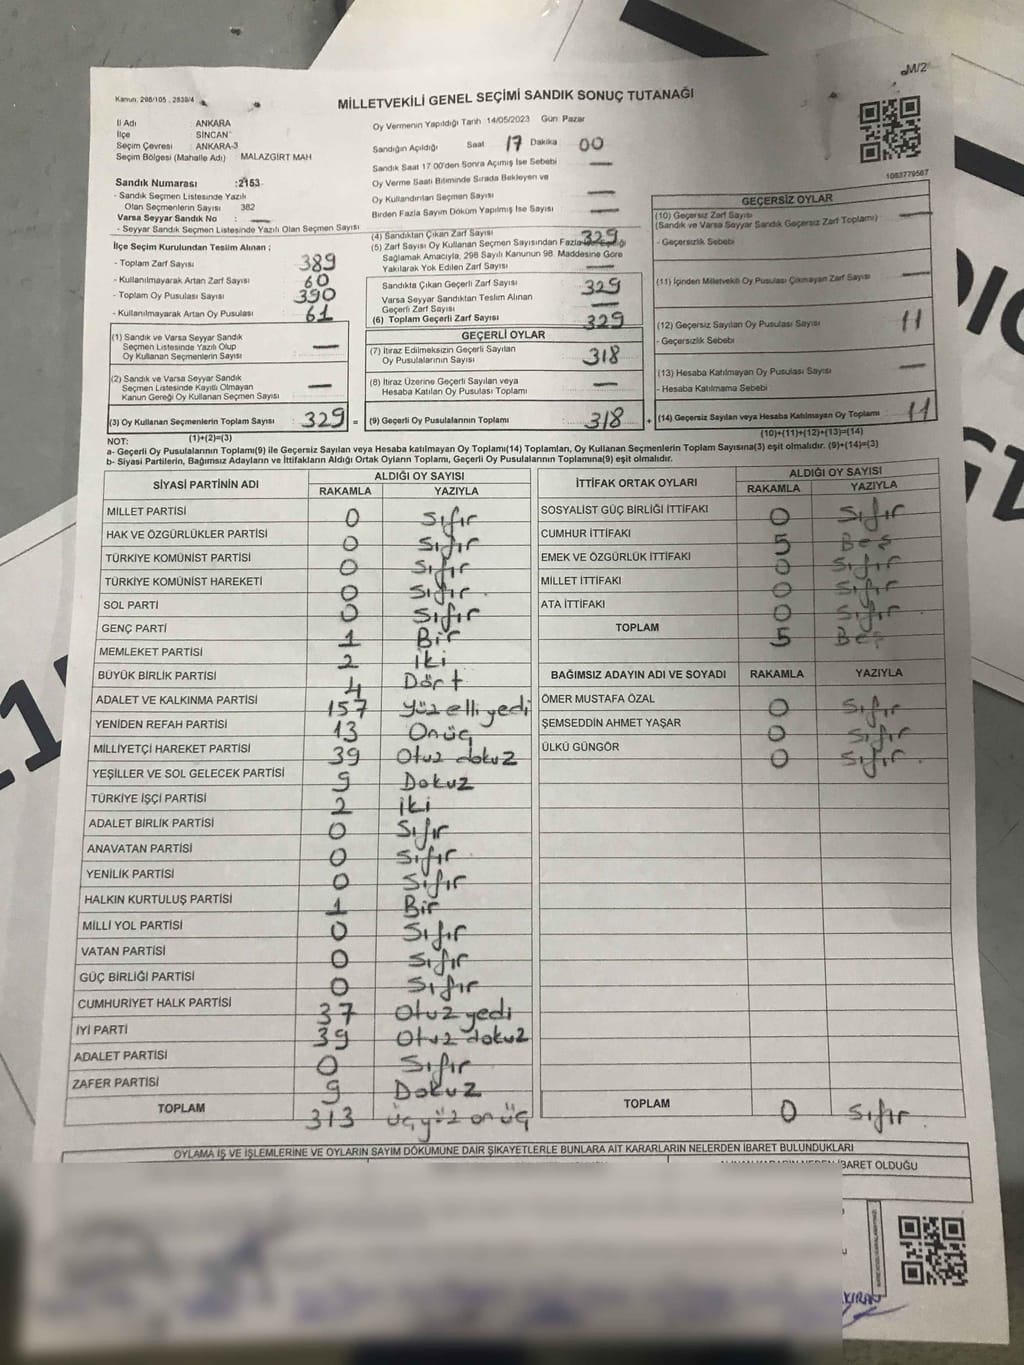 M/2
Kanun: 298/105 , 2839/4
MİLLETVEKİLİ GENEL SEÇİMİ SANDIK SONUÇ TUTANAĞI
İl Adı : ANKARA
İlçe SİNCAN
Seçim Çevresi : ANKARA-3
Seçim Bölgesi (Mahalle Adı) MALAZGİRT MAH
Oy Vermenin Yapıldığı Tarih 14/05/2023 Gün: Pazar
Sandığın Açıldığı Saat 17 Dakika 00
Sandık Saat 17.00'den Sonra Açımış İse Sebebi —
Oy Verme Saati Bitiminde Sırada Bekleyen ve
Oy Kullandırılan Seçmen Sayısı —
Birden Fazla Sayım Döküm Yapılmış İse Sayısı —
1083779587
Sandık Numarası :2153
- Sandık Seçmen Listesinde Yazılı
Olan Seçmenlerin Sayısı 382
Varsa Seyyar Sandık No : —
- Seyyar Sandık Seçmen Listesinde Yazılı Olan Seçmen Sayısı
İlçe Seçim Kurulundan Teslim Alınan ;
- Toplam Zarf Sayısı 389
- Kullanılmayarak Artan Zarf Sayısı 60
- Toplam Oy Pusulası Sayısı 390
- Kullanılmayarak Artan Oy Pusulası 61
(1) Sandık ve Varsa Seyyar Sandık
Seçmen Listesinde Yazılı Olup
Oy Kullanan Seçmenlerin Sayısı —
(2) Sandık ve Varsa Seyyar Sandık
Seçmen Listesinde Kayıtlı Olmayan
Kanun Gereği Oy Kullanan Seçmen Sayısı —
(3) Oy Kullanan Seçmenlerin Toplam Sayısı 329 =
(4) Sandıktan Çıkan Zarf Sayısı 329
(5) Zarf Sayısı Oy Kullanan Seçmen Sayısından Fazla ise Eşitliği
Sağlamak Amacıyla, 298 Sayılı Kanunun 98. Maddesine Göre
Yakılarak Yok Edilen Zarf Sayısı —
Sandıkta Çıkan Geçerli Zarf Sayısı 329
Varsa Seyyar Sandıktan Teslim Alınan
Geçerli Zarf Sayısı —
(6) Toplam Geçerli Zarf Sayısı 329
GEÇERLİ OYLAR
(7) İtiraz Edilmeksizin Geçerli Sayılan
Oy Pusulalarının Sayısı 318
(8) İtiraz Üzerine Geçerli Sayılan veya
Hesaba Katılan Oy Pusulası Toplamı —
(9) Geçerli Oy Pusulalarının Toplamı 318 +
GEÇERSİZ OYLAR
(10) Geçersiz Zarf Sayısı —
(Sandık ve Varsa Seyyar Sandık Geçersiz Zarf Toplamı)
- Geçersizlik Sebebi
(11) İçinden Milletvekili Oy Pusulası Çıkmayan Zarf Sayısı —
(12) Geçersiz Sayılan Oy Pusulası Sayısı 11
- Geçersizlik Sebebi
(13) Hesaba Katılmayan Oy Pusulası Sayısı —
- Hesaba Katılmama Sebebi
(14) Geçersiz Sayılan veya Hesaba Katılmayan Oy Toplamı 11
NOT: (1)+(2)=(3) (10)+(11)+(12)+(13)=(14)
a- Geçerli Oy Pusulalarının Toplamı(9) ile Geçersiz Sayılan veya Hesaba katılmayan Oy Toplamı(14) Toplamları, Oy Kullanan Seçmenlerin Toplam Sayısına(3) eşit olmalıdır. (9)+(14)=(3)
b- Siyasi Partilerin, Bağımsız Adayların ve İttifakların Aldığı Ortak Oyların Toplamı, Geçerli Oy Pusulalarının Toplamına(9) eşit olmalıdır.
SİYASİ PARTİNİN ADI ALDIĞI OY SAYISI
RAKAMLA YAZIYLA
MİLLET PARTİSİ 0 Sıfır
HAK VE ÖZGÜRLÜKLER PARTİSİ 0 Sıfır
TÜRKİYE KOMÜNİST PARTİSİ 0 Sıfır
TÜRKİYE KOMÜNİST HAREKETİ 0 Sıfır
SOL PARTİ 0 Sıfır
GENÇ PARTİ 1 Bir
MEMLEKET PARTİSİ 2 iki
BÜYÜK BİRLİK PARTİSİ 4 Dört
ADALET VE KALKINMA PARTİSİ 157 yüzelliyedi
YENİDEN REFAH PARTİSİ 13 Onüç
MİLLİYETÇİ HAREKET PARTİSİ 39 Otuz dokuz
YEŞİLLER VE SOL GELECEK PARTİSİ 9 Dokuz
TÜRKİYE İŞÇİ PARTİSİ 2 iki
ADALET BİRLİK PARTİSİ 0 Sıfır
ANAVATAN PARTİSİ 0 Sıfır
YENİLİK PARTİSİ 0 Sıfır
HALKIN KURTULUŞ PARTİSİ 1 Bir
MİLLİ YOL PARTİSİ 0 Sıfır
VATAN PARTİSİ 0 Sıfır
GÜÇ BİRLİĞİ PARTİSİ 0 Sıfır
CUMHURİYET HALK PARTİSİ 37 Otuz yedi
İYİ PARTİ 39 Otuz dokuz
ADALET PARTİSİ 0 Sıfır
ZAFER PARTİSİ 9 Dokuz
TOPLAM 313 üçyüz onüç
İTTİFAK ORTAK OYLARI ALDIĞI OY SAYISI
RAKAMLA YAZIYLA
SOSYALİST GÜÇ BİRLİĞİ İTTİFAKI 0 Sıfır
CUMHUR İTTİFAKI 5 Beş
EMEK VE ÖZGÜRLÜK İTTİFAKI 0 Sıfır
MİLLET İTTİFAKI 0 Sıfır
ATA İTTİFAKI 0 Sıfır
TOPLAM 5 Beş
BAĞIMSIZ ADAYIN ADI VE SOYADI RAKAMLA YAZIYLA
ÖMER MUSTAFA ÖZAL 0 Sıfır
ŞEMSEDDİN AHMET YAŞAR 0 Sıfır
ÜLKÜ GÜNGÖR 0 Sıfır
TOPLAM 0 Sıfır
OYLAMA İŞ VE İŞLEMLERİNE VE OYLARIN SAYIM DÖKÜMÜNE DAİR ŞİKAYETLERLE BUNLARA AİT KARARLARIN NELERDEN İBARET BULUNDUKLARI
İBARET OLDUĞU